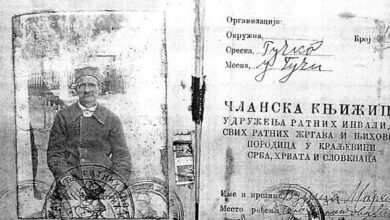 Организација:
Окружна, Број
Среска Гучко
Месна, у Гучи
ЧЛАНСКА КЊИЖИЦ
УДРУЖЕЊА РАТНИХ ИНВАЛИ
СВИХ РАТНИХ ЖРТАВА И ЊИХОВИ
ПОРОДИЦА У КРАЉЕВИНИ
СРБА, ХРВАТА И СЛОВЕНАЦА
Име и презиме
Место рођењ